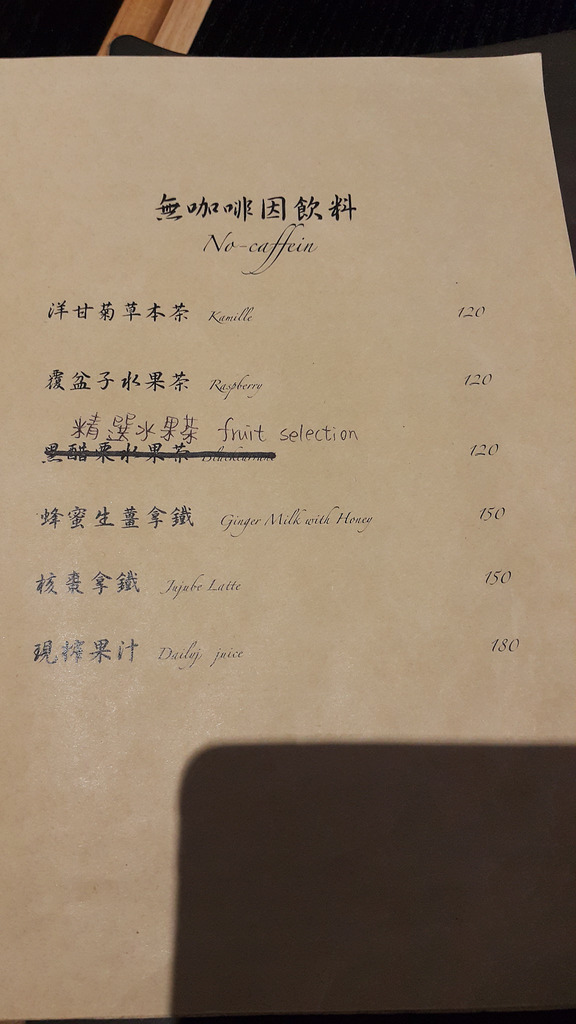 無咖啡因飲料
No-caffein
洋甘菊草本茶 Kamille 120
覆盆子水果茶 Raspberry 120
精選水果茶 fruit selection
黑醋栗水果茶 Blackcurrant 120
蜂蜜生薑拿鐵 Ginger Milk with Honey 150
核棗拿鐵 Jujube Latte 150
現搾果汁 Dailyj juice 180